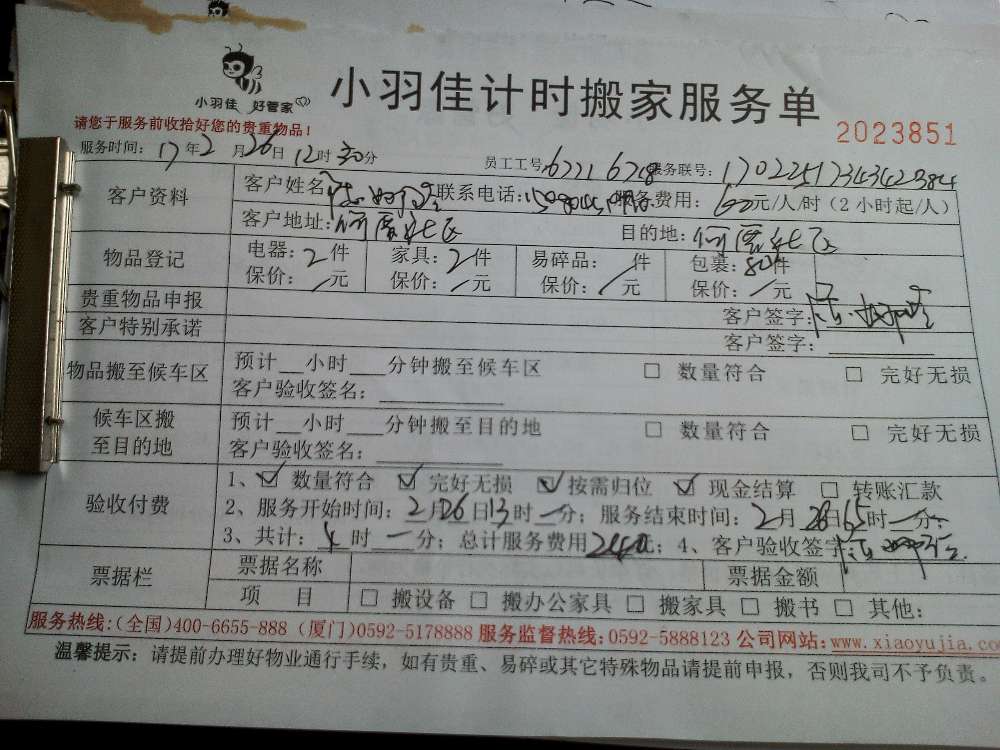 小羽佳 好管家
小羽佳计时搬家服务单
2023851
请您于服务前收拾好您的贵重物品！
服务时间：17年2月26日12时30分 员工工号 6721 6718 服务联号：1702251734342384
客户资料 客户姓名 联系电话： 服务费用：60元/人/时（2小时起/人）
客户地址： 目的地：
物品登记 电器：2件 家具：2件 易碎品：/件 包裹：80件
保价：/元 保价：/元 保价：/元 保价：/元
贵重物品申报 客户签字：
客户特别承诺 客户签字：
物品搬至候车区 预计__小时___分钟搬至候车区 □ 数量符合 □ 完好无损
客户验收签名：
候车区搬至目的地 预计__小时___分钟搬至目的地 □ 数量符合 □ 完好无损
客户验收签名：
验收付费 1、☑ 数量符合 ☑ 完好无损 ☑ 按需归位 ☑ 现金结算 □ 转账汇款
2、服务开始时间：2月26日13时一分；服务结束时间：2月26日 时一分。
3、共计：4时一分；总计服务费用240元；4、客户验收签字：
票据栏 票据名称 票据金额
项 目 □ 搬设备 □ 搬办公家具 □ 搬家具 □ 搬书 □ 其他：
服务热线：(全国)400-6655-888 (厦门)0592-5178888 服务监督热线：0592-5888123 公司网站：www.xiaoyujia.co
温馨提示：请提前办理好物业通行手续，如有贵重、易碎或其它特殊物品请提前申报，否则我司不予负责。